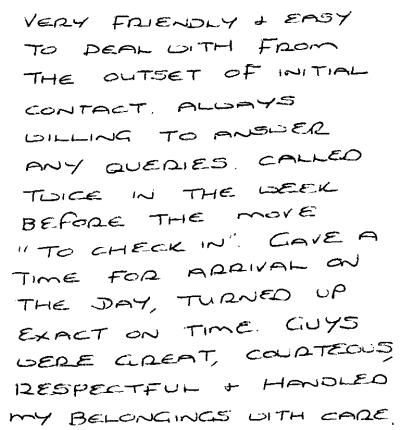 VERY FRIENDLY & EASY
TO DEAL WITH FROM
THE OUTSET OF INITIAL
CONTACT. ALWAYS
WILLING TO ANSWER
ANY QUERIES. CALLED
TWICE IN THE WEEK
BEFORE THE MOVE
"TO CHECK IN". GAVE A
TIME FOR ARRIVAL ON
THE DAY, TURNED UP
EXACT ON TIME. GUYS
WERE GREAT, COURTEOUS,
RESPECTFUL & HANDLED
MY BELONGINGS WITH CARE.